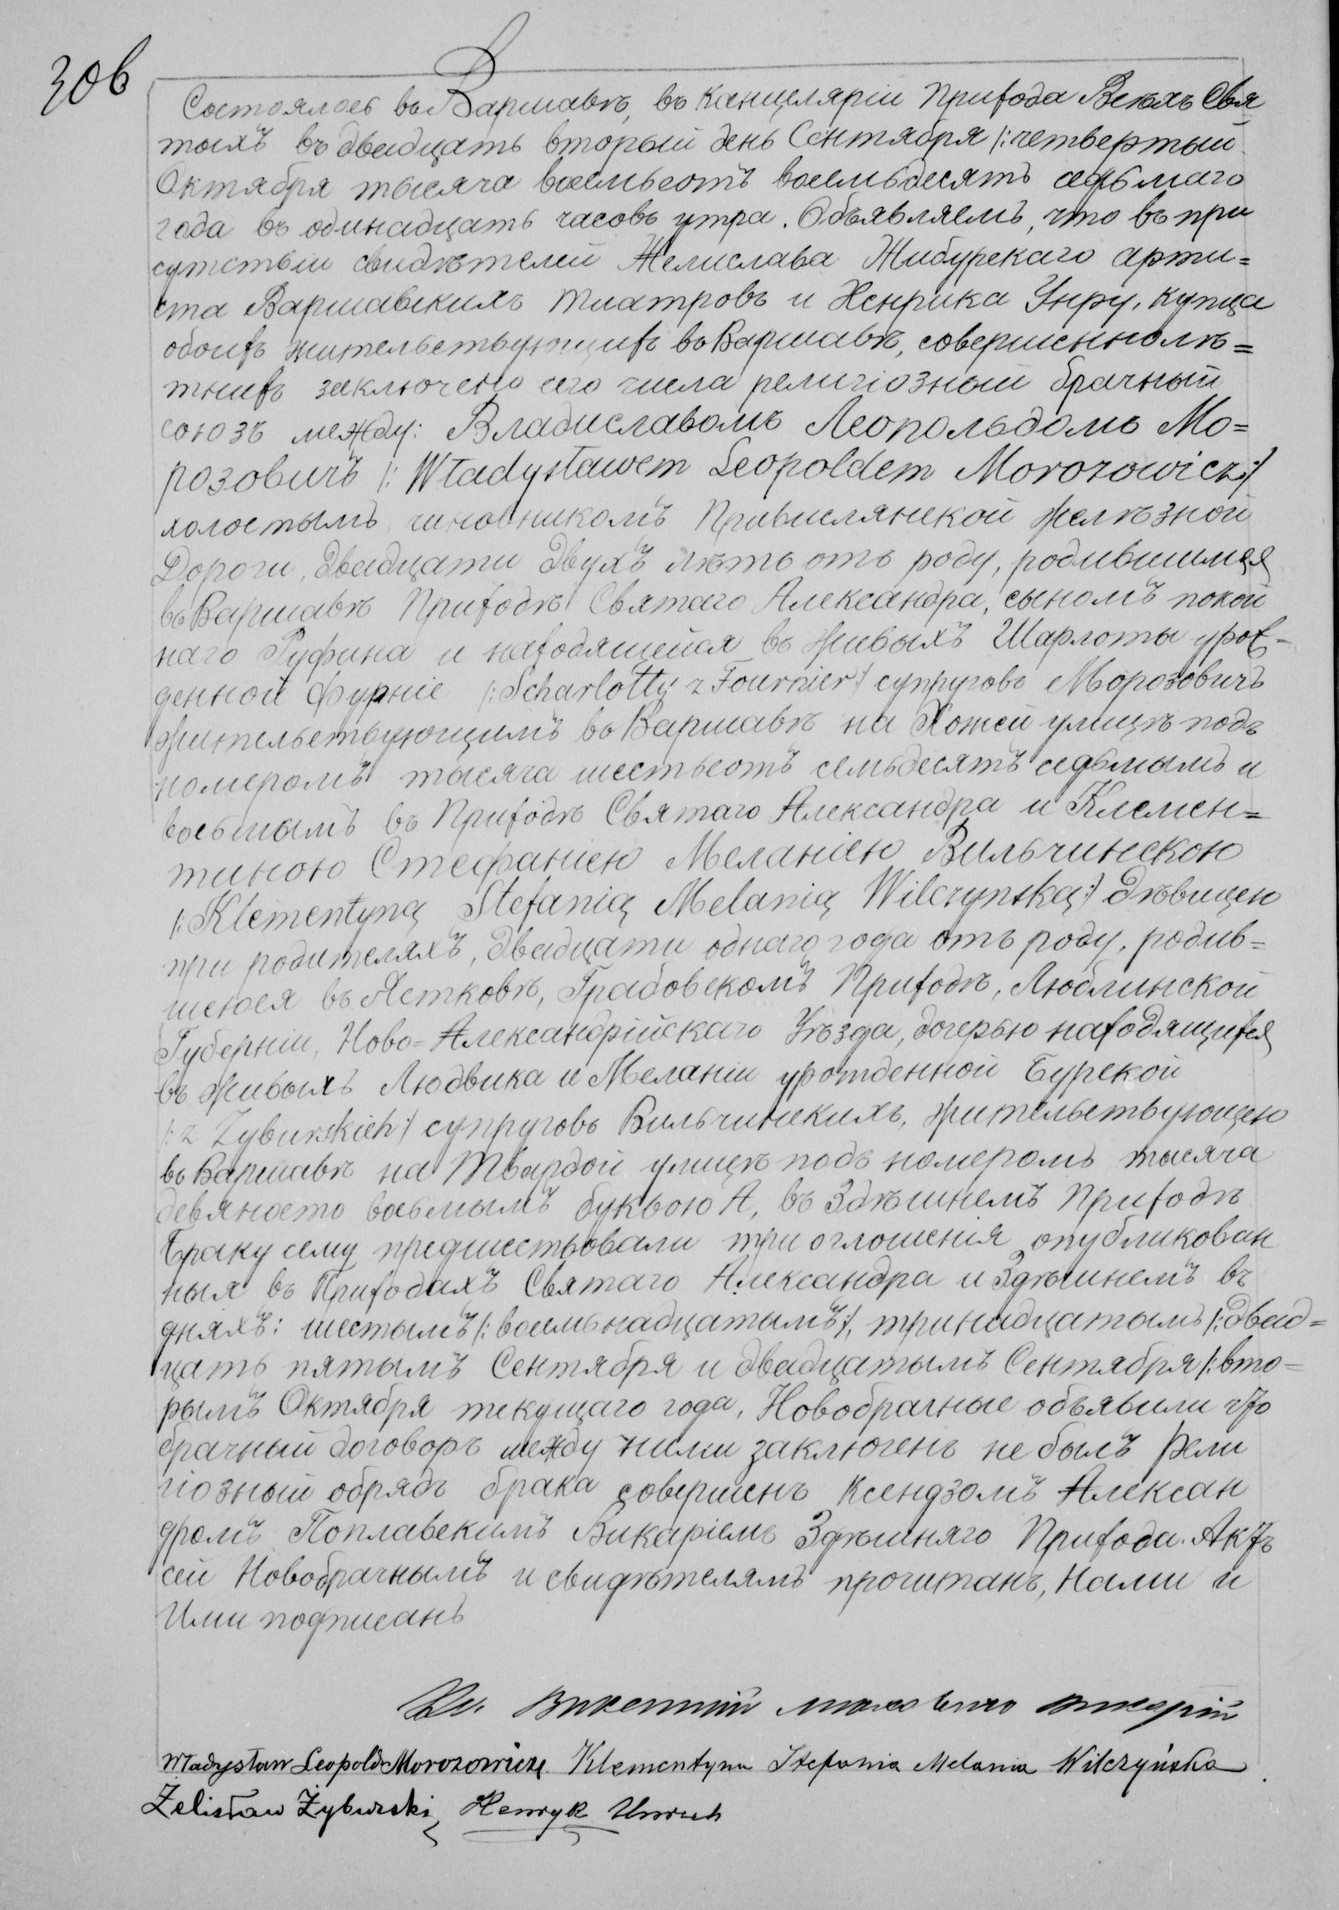 306
Состоялось въ Варшавѣ, въ Канцеляріи Прихода Всѣхъ Свя
тыхъ въ двадцать вторый день Сентября /: четвертый
Октября тысяча восемьсотъ восемьдесятъ седьмаго
года въ одинадцать часовъ утра. Объявляемъ, что въ при
сутствіи свидѣтелей Желислава Жибурскаго арти=
ста Варшавскихъ театровъ и Хенрика Унру, купца
обоихъ жительствующихъ въ Варшавѣ, совершеннолѣ=
тнихъ заключенъ сего числа религіозный брачный
союзъ между: Владиславомъ Леопольдомъ Мо=
розовичъ /: Władysławem Leopoldem Morozowicz :/
холостымъ чиновникомъ Привислянской Желѣзной
Дороги, двадцати двухъ лѣтъ отъ роду, родившимся
въ Варшавѣ Приходѣ Святаго Александра, сыномъ покой
наго Руфина и находящейся въ живыхъ Шарлоты урож=
денной Фурніе /: Scharlotty z Fournier :/ супруговъ Морозовичъ
жительствующимъ въ Варшавѣ на Хожей улицѣ подъ
номеромъ тысяча шестьсотъ семьдесятъ седьмымъ и
восьмымъ въ Приходѣ Святаго Александра и Клемен=
тиною Стефаніею Меланіею Вильчинскою
/: Klementyną Stefanią Melanią Wilczynską :/ Дѣвицею
при родителяхъ, двадцати однаго года отъ роду, родив=
шеюся въ Ястковѣ, Грабовскомъ Приходѣ, Люблинской
Губерніи, Ново=Александрійскаго Уѣзда, дочерью находящихся
въ живыхъ Людвика и Меланіи урожденной Бурской
/: z Zyburskich :/ супруговъ Вильчинскихъ, жительствующею
въ Варшавѣ на Твардой улицѣ подъ номеромъ тысяча
девяносто восьмымъ буквою А, въ Здѣшнемъ Приходѣ
Браку сему предшествовали три оглошенія опубликован
ныя въ Приходахъ Святаго Александра и Здѣшнемъ въ
дняхъ: шестымъ /: восемьнадцатымъ :/, тринадцатымъ /: двад=
цать пятымъ Сентября и двадцатымъ Сентября /: вто=
рымъ Октября текущаго года, Новобрачные объявили что
брачный договоръ между ними заключенъ не былъ Рели
гіозный обрядъ брака совершенъ Ксендзомъ Алексан
дромъ Поплавскимъ Викаріемъ Здѣшняго Прихода. Актъ
сей Новобрачнымъ и свидѣтелямъ прочитанъ, Нами и
Ими подписанъ
Кс. Викентій викарій
Władysław Leopold Morozowicz. Klementyna Stefania Melania Wilczyńska
Żelisław Żyburski, Henryk Unruh